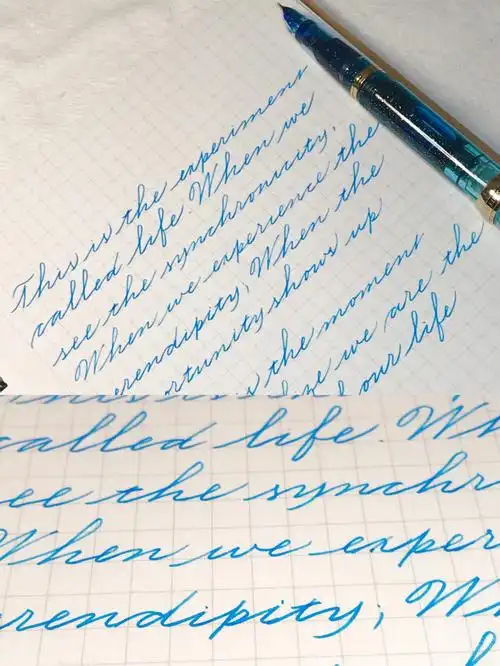 This is the experiment
called life. When we
see the synchronicity.
When we experience the
serendipity; When the
opportunity shows up
is the moment
we are the
our life
called life Wh
see the synchr
When we exper
erendipity; Wh